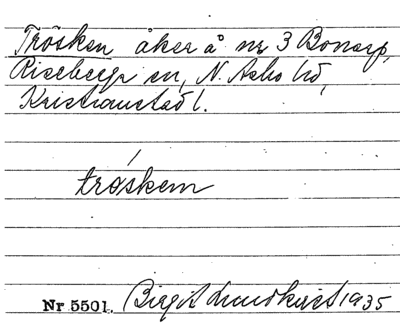 Trösken åker å nr 3 Bonarp,
Riseberga sn, N. Åsbo hd,
Kristianstad l.
trøskem
Nr 5501. Birgit Lundkvist 1935